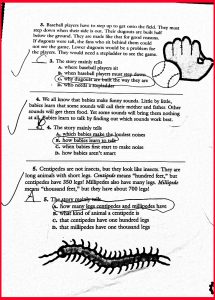 3. Baseball players have to step up to get onto the field. They must
step down when their side is out. Their dugouts are built half
below the ground. They are made like that for good reasons.
If dugouts were all, the fans who sit behind them could
not see the game. Lower dugouts would be a problem for
the players. They would need a stepladder to see the game.
3. The story mainly tells
A. where baseball players sit
B. when baseball players must step down
C. why dugouts are built the way they are
D. who needs a stepladder
4. We all know that babies make funny sounds. Little by little,
babies learn that some sounds will call their mother and father. Other
sounds will get them food. Or some sounds will bring them nothing
at all. Babies learn to talk by finding out which sounds work best.
4. The story mainly tells
A. which babies make the loudest noises
B. how babies learn to talk
C. when babies first start to make noise
D. how babies aren't smart
5. Centipedes are not insects, but they look like insects. They are
long animals with short legs. Centipede means "hundred feet," but
centipedes have 350 legs! Millipedes also have many legs. Millipede
means "thousand feet," but they have about 700 legs!
A 5. The story mainly tells
A. how many legs centipedes and millipedes have
B. what kind of animal a centipede is
C. that centipedes have one hundred legs
D. that millipedes have one thousand legs